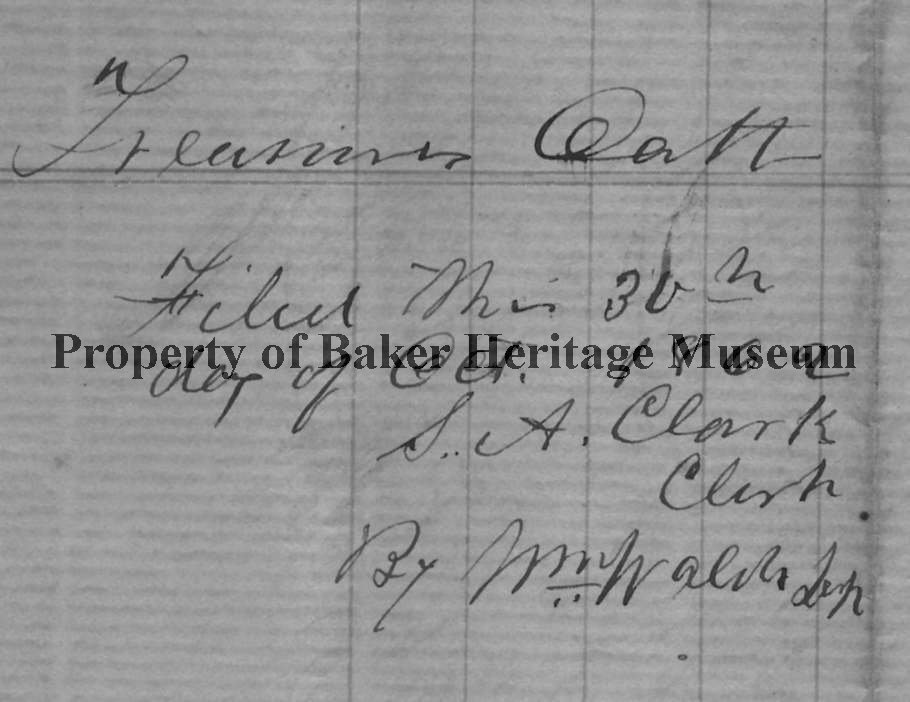 Treasurers Oath
Filed this 30th
Property of Baker Heritage Museum
day of Oct. 1862
S. A. Clark
Clerk
By Wm Waldo Dep